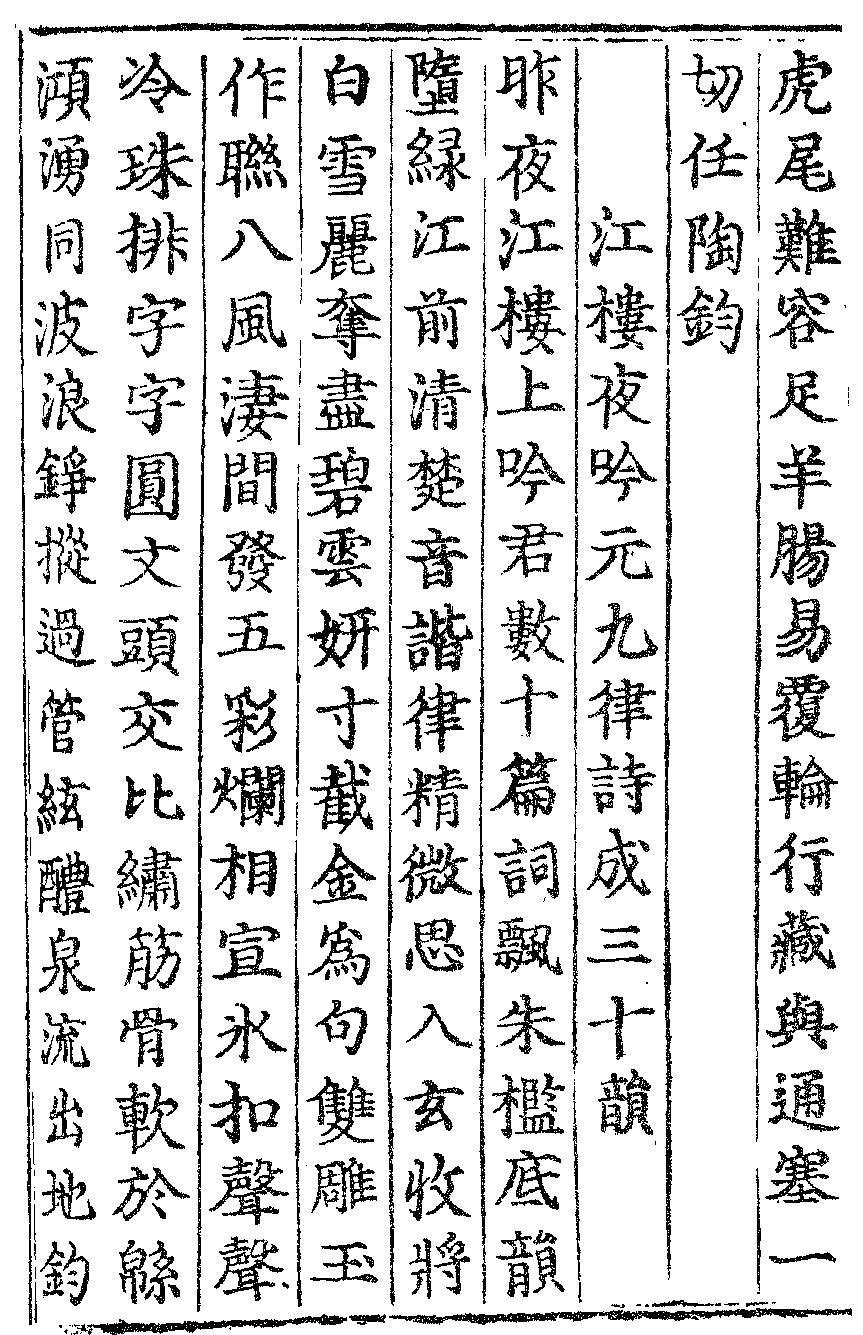 虎尾難容足羊腸易覆輪行藏與通塞一
切任陶鈞
江樓夜吟元九律詩成三十韻
昨夜江樓上吟君數十篇詞飄朱檻底韻
墮綠江前清楚音諧律精微思入玄收將
白雪麗奪盡碧雲妍寸截金爲句雙雕玉
作聯八風淒間發五彩爛相宣氷扣聲聲
冷珠排字字圓文頭交比繡筋骨軟於緜
澒湧同波浪錚摐過管絃醴泉流出地鈞